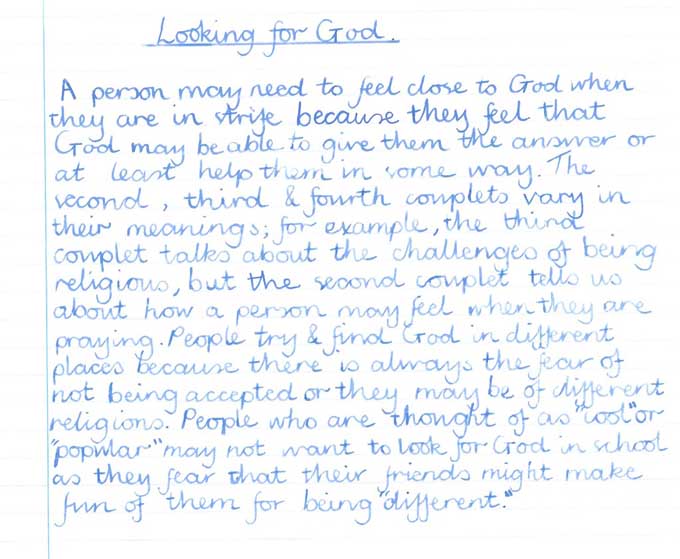 Looking for God.
A person may need to feel close to God when
they are in strife because they feel that
God may be able to give them the answer or
at least help them in some way. The
second, third & fourth couplets vary in
their meanings; for example, the third
couplet talks about the challenges of being
religious, but the second couplet tells us
about how a person may feel when they are
praying. People try & find God in different
places because there is always the fear of
not being accepted or they may be of different
religions. People who are thought of as "cool" or
"popular" may not want to look for God in school
as they fear that their friends might make
fun of them for being "different."